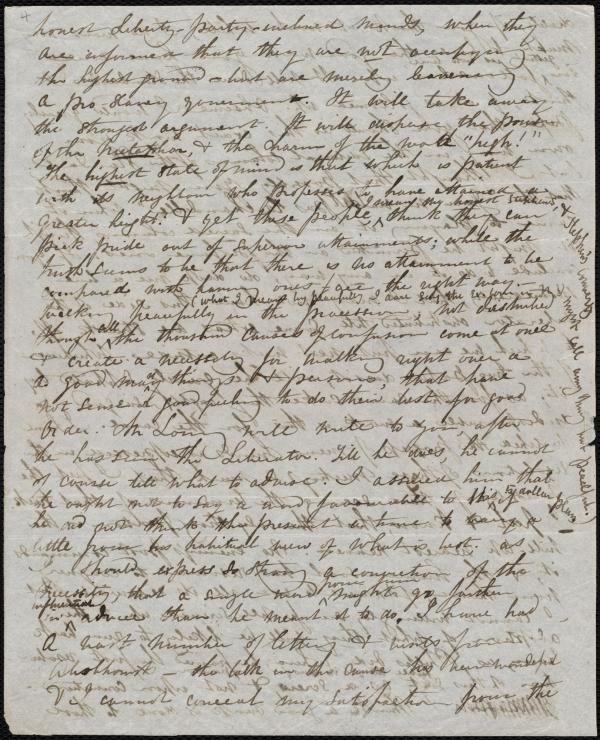 honest Liberty-party-inclined minds, when they
are informed that they are not occupying
the highest ground - but are merely leavening
a pro-slavery government. It will take away
the strongest argument. It will disperse the power
of the metaphor, & the charm of the word "high!"
The highest state of mind is that which is patient
with its neighbour who supposes to have attained a
greater hight. & yet these people, think they can
I mean my honest
pick pride out of superior attainments; while the
truth seems to be that there is no attainment to be
compared with having ones eye the right way.
(what I mean by peacefully, I
walking peacefully in the procession, not disturbed
though all the thousand causes of confusion come at once
& create a necessity for walking right over a
a good many things & persons, that have
not sense & good feeling to do their best for good
order. Mr Loring will write to you, after
he has seen the Liberator. Till he does, he cannot
of course tell what to advise. I assured him that
he ought not to say a word favourable to this, if
he did not think the present a time to vary a
little from his habitual view of what is best. as
I should express so strong a conviction of the
necessity, that a single word might go further
influential
in advice than he meant it to do. I have had
a vast number of letters & hints from
- the talk in the cause has been wonderful
& I cannot conceal my satisfaction from the